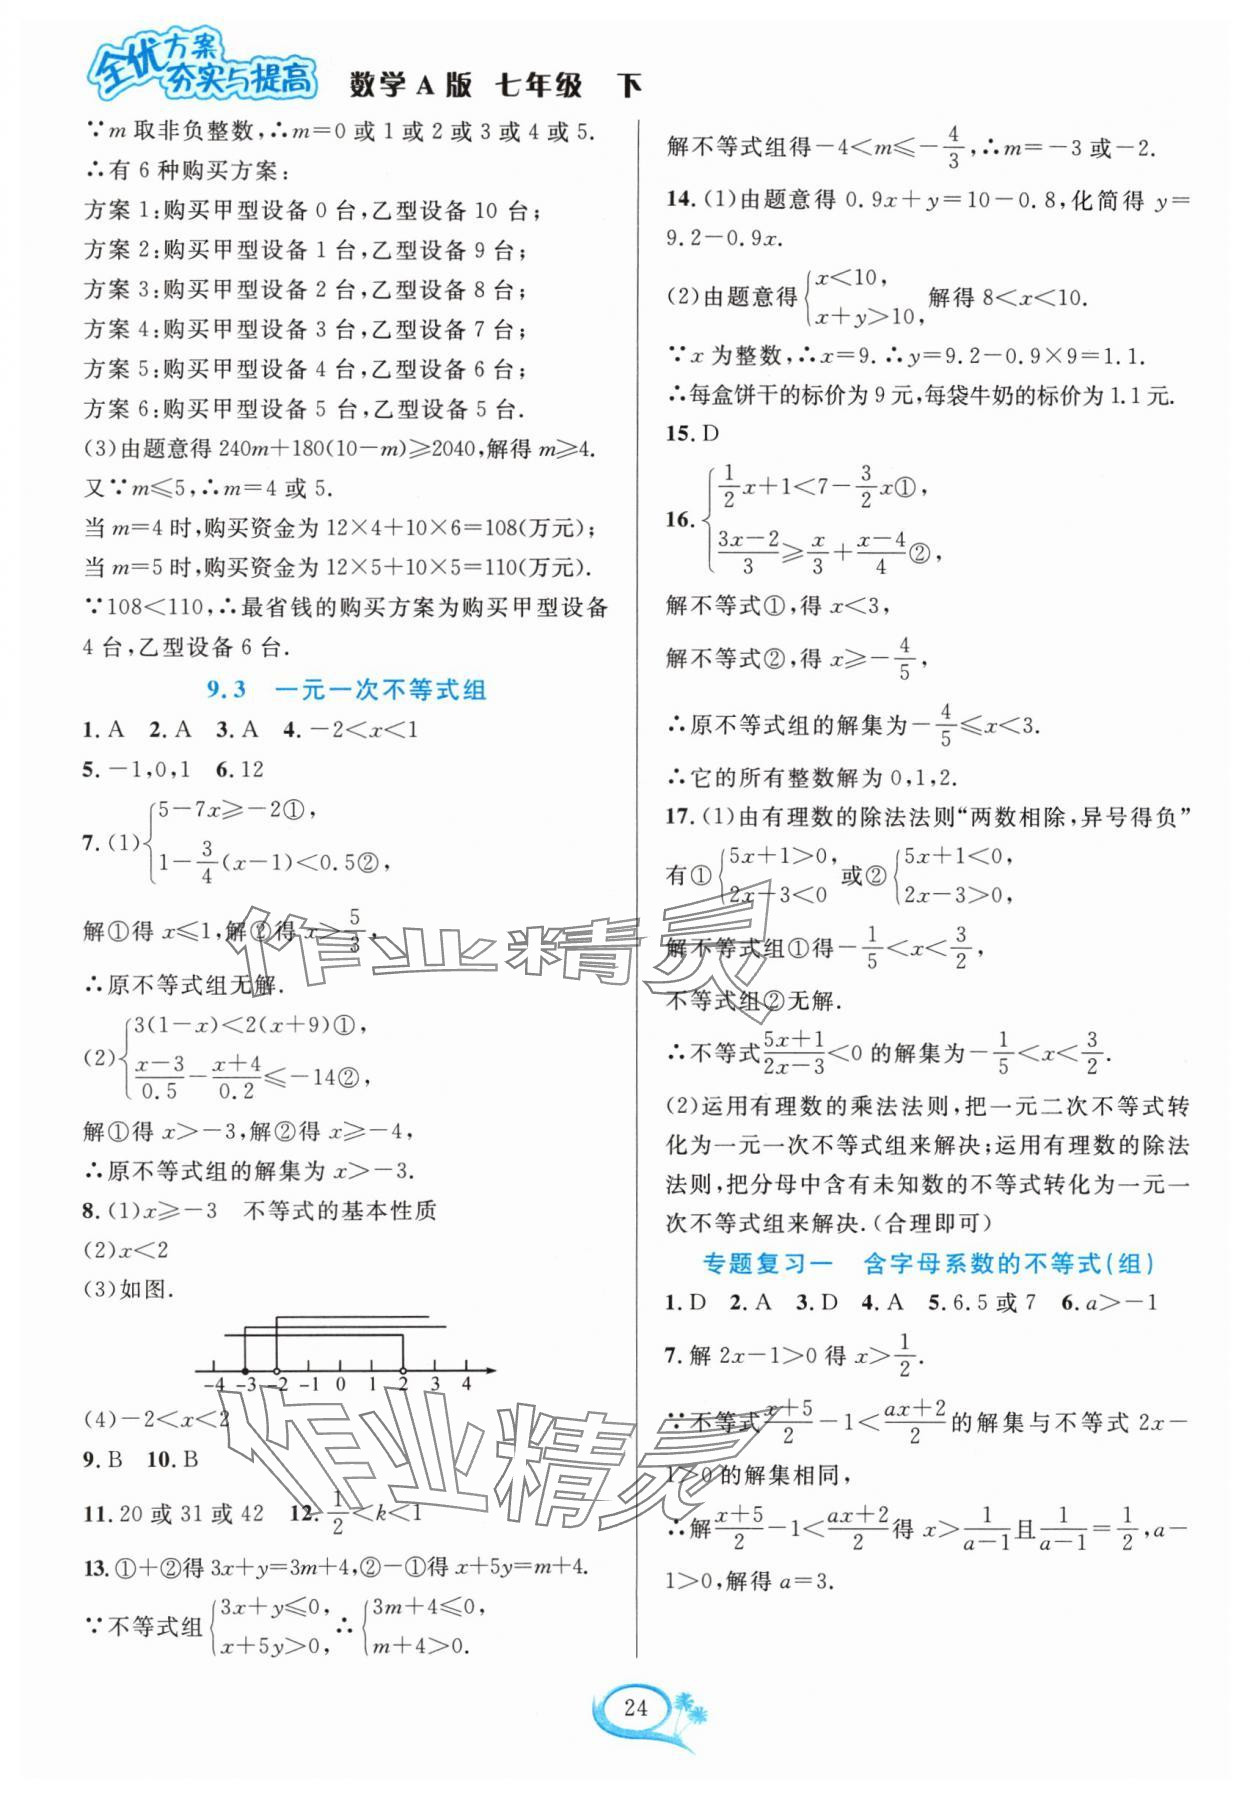 全优方案
夯实与提高
数学 A 版 七年级 下
∵m 取非负整数,∴m=0 或 1 或 2 或 3 或 4 或 5.
∴有 6 种购买方案:
方案 1:购买甲型设备 0 台,乙型设备 10 台;
方案 2:购买甲型设备 1 台,乙型设备 9 台;
方案 3:购买甲型设备 2 台,乙型设备 8 台;
方案 4:购买甲型设备 3 台,乙型设备 7 台;
方案 5:购买甲型设备 4 台,乙型设备 6 台;
方案 6:购买甲型设备 5 台,乙型设备 5 台.
(3)由题意得 240m+180(10-m)≥2040,解得 m≥4.
又∵m≤5,∴m=4 或 5.
当 m=4 时,购买资金为 12×4+10×6=108(万元);
当 m=5 时,购买资金为 12×5+10×5=110(万元).
∵108<110,∴最省钱的购买方案为购买甲型设备
4 台,乙型设备 6 台.
9.3 一元一次不等式组
1. A 2. A 3. A 4. -2<x<1
5. -1,0,1 6. 12
7. (1){5-7x≥-2①,
1-3/4(x-1)<0.5②,
解①得 x≤1,解②得 x>5/3,
∴原不等式组无解.
(2){3(1-x)<2(x+9)①,
(x-3)/0.5-(x+4)/0.2≤-14②,
解①得 x>-3,解②得 x≥-4,
∴原不等式组的解集为 x>-3.
8. (1)x≥-3 不等式的基本性质
(2)x<2
(3)如图.
-4 -3 -2 -1 0 1 2 3 4
(4)-2<x<2
9. B 10. B
11. 20 或 31 或 42 12. 1/2<k<1
13. ①+②得 3x+y=3m+4,②-①得 x+5y=m+4.
∵不等式组{3x+y≤0, x+5y>0, ∴{3m+4≤0, m+4>0,
解不等式组得-4<m≤-4/3,∴m=-3 或-2.
14. (1)由题意得 0.9x+y=10-0.8,化简得 y=
9.2-0.9x.
(2)由题意得{x<10, x+y>10, 解得 8<x<10.
∵x 为整数,∴x=9.∴y=9.2-0.9×9=1.1.
∴每盒饼干的标价为 9 元,每袋牛奶的标价为 1.1 元.
15. D
16. {1/2x+1<7-3/2x①,
(3x-2)/3≥x/3+(x-4)/4②,
解不等式①,得 x<3,
解不等式②,得 x≥-4/5,
∴原不等式组的解集为-4/5≤x<3.
∴它的所有整数解为 0,1,2.
17. (1)由有理数的除法法则“两数相除,异号得负”
有①{5x+1>0, 2x-3<0 或②{5x+1<0, 2x-3>0,
解不等式组①得-1/5<x<3/2,
不等式组②无解.
∴不等式(5x+1)/(2x-3)<0 的解集为-1/5<x<3/2.
(2)运用有理数的乘法法则,把一元二次不等式转
化为一元一次不等式组来解决;运用有理数的除法
法则,把分母中含有未知数的不等式转化为一元一
次不等式组来解决.(合理即可)
专题复习一 含字母系数的不等式(组)
1. D 2. A 3. D 4. A 5. 6.5 或 7 6. a>-1
7. 解 2x-1>0 得 x>1/2.
∵不等式(x+5)/2-1<(ax+2)/2的解集与不等式 2x-
1>0 的解集相同,
∴解(x+5)/2-1<(ax+2)/2得 x>1/(a-1)且1/(a-1)=1/2,a-
1>0,解得 a=3.
24
作业精灵
作业精灵